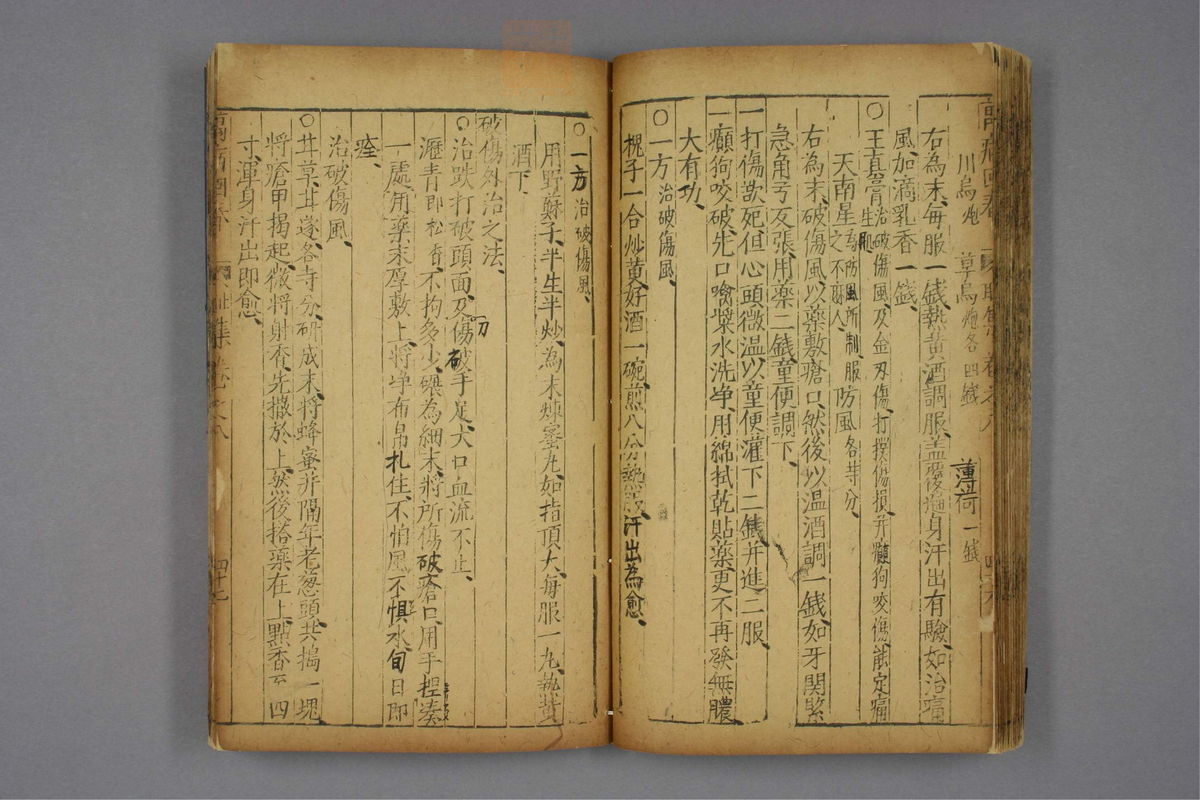 川烏炮 草烏炮各四錢 薄荷一錢
右為末、每服一錢、熱黃酒調服、蓋覆遍身汗出有驗、如治痛
風、加滴乳香一錢、
○玉真膏治破傷風、及金刃傷、打撲傷損、并癲狗咬傷、能定痛生肌、
天南星為防風所制、服之不麻人、 防風各等分、
右為末、破傷風、以藥敷瘡口、然後以溫酒調一錢、如牙關緊
急角弓反張、用藥二錢、童便調下、
一打傷欲死、但心頭微溫、以童便灌下二錢、并進二服、
一癲狗咬破、先口噙漿水洗淨、用綿拭乾貼藥、更不再發、無膿
大有功、
○一方治破傷風、
槐子一合炒黃、好酒一碗、煎八分、熱服、汗出為愈、
○一方治破傷風、
用野蘇子、半生半炒、為末、煉蜜丸、如指頂大、每服一丸、執黃
酒下、
破傷外治之法、
○治跌打破頭面、及刀傷破手足、大口血流不止、
瀝青即松香、不拘多少、碾為細末、將所傷破瘡口、用手捏湊
一處、用藥末厚敷上、將淨布帛札住、不怕風、不惧水、旬日即
痊、
治破傷風、
○甘草、甘遂、各等分、研成末、將蜂蜜并隔年老葱頭、共搗一塊、
將瘡甲揭起、微將射香、先撒於上、然後搭藥在上、點香至四
寸、渾身汗出即愈、
四十七